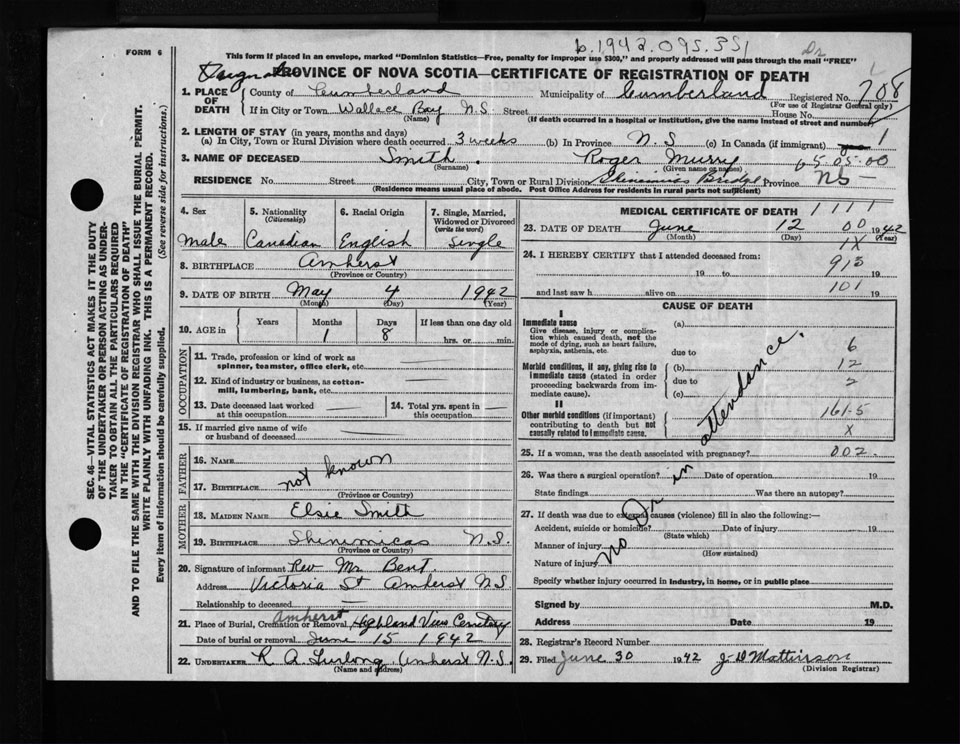 b.1942.095.351
Dr
FORM 6
This form if placed in an envelope, marked "Dominion Statistics—Free, penalty for improper use $300," and properly addressed will pass through the mail "FREE"
PROVINCE OF NOVA SCOTIA—CERTIFICATE OF REGISTRATION OF DEATH
1. PLACE OF DEATH County of Cumberland Municipality of Cumberland Registered No. 708
(For use of Registrar General only)
If in City or Town Wallace Bay N.S. Street House No.
(Name) (If death occurred in a hospital or institution, give the name instead of street and number)
2. LENGTH OF STAY (in years, months and days)
(a) In City, Town or Rural Division where death occurred 3 weeks (b) In Province N.S (c) In Canada (if immigrant) 1
3. NAME OF DECEASED Smith. Roger Murry 65.05.00
(Surname) (Given name or names)
RESIDENCE No. Street City, Town or Rural Division Shinimicas Bridge Province NS
(Residence means usual place of abode. Post Office Address for residents in rural parts not sufficient)
4. Sex Male
5. Nationality (Citizenship) Canadian
6. Racial Origin English
7. Single, Married, Widowed or Divorced (write the word) Single
8. BIRTHPLACE Amherst
(Province or Country)
9. DATE OF BIRTH May 4 1942
(Month) (Day) (Year)
10. AGE in Years Months 1 Days 8 If less than one day old
hrs. or min.
OCCUPATION
11. Trade, profession or kind of work as spinner, teamster, office clerk, etc.
12. Kind of industry or business, as cotton-mill, lumbering, bank, etc.
13. Date deceased last worked at this occupation
14. Total yrs. spent in this occupation
15. If married give name of wife or husband of deceased
FATHER
16. NAME not known
17. BIRTHPLACE
(Province or Country)
MOTHER
18. MAIDEN NAME Elsie Smith
19. BIRTHPLACE Shinimicas N.S.
(Province or Country)
20. Signature of informant Rev Mr Bent.
Address Victoria St Amherst NS
Relationship to deceased
21. Place of Burial, Cremation or Removal Amherst Highland View Cemetery
Date of burial or removal June 15 1942
22. UNDERTAKER R A Furlong Amherst N.S.
(Name and address)
MEDICAL CERTIFICATE OF DEATH 1111
23. DATE OF DEATH June 12 00 1942
(Month) (Day) 1X (Year)
24. I HEREBY CERTIFY that I attended deceased from: 913
19 to 19
and last saw h alive on 101 19
CAUSE OF DEATH
I
Immediate cause (a)
Give disease, injury or complication which caused death, not the mode of dying, such as heart failure, asphyxia, asthenia, etc.
due to 6
Morbid conditions, if any, giving rise to immediate cause (stated in order proceeding backwards from immediate cause). (b) 12
due to 2
(c)
II
Other morbid conditions (if important) contributing to death but not causally related to immediate cause. 161-5
X
No Dr in attendance.
25. If a woman, was the death associated with pregnancy? 002.
26. Was there a surgical operation? Date of operation 19
State findings Was there an autopsy?
27. If death was due to external causes (violence) fill in also the following:—
Accident, suicide or homicide? Date of injury 19
(State which)
Manner of injury
(How sustained)
Nature of injury
Specify whether injury occurred in industry, in home, or in public place
Signed by M.D.
Address Date 19
28. Registrar's Record Number
29. Filed June 30 1942 J D Mattinson
(Division Registrar)
SEC. 46—VITAL STATISTICS ACT MAKES IT THE DUTY
OF THE UNDERTAKER OR PERSON ACTING AS UNDER-
TAKER TO OBTAIN ALL THE PARTICULARS REQUIRED
IN THE "CERTIFICATE OF REGISTRATION OF DEATH"
AND TO FILE THE SAME WITH THE DIVISION REGISTRAR WHO SHALL ISSUE THE BURIAL PERMIT.
WRITE PLAINLY WITH UNFADING INK. THIS IS A PERMANENT RECORD.
Every item of information should be carefully supplied. (See reverse side for instructions.)